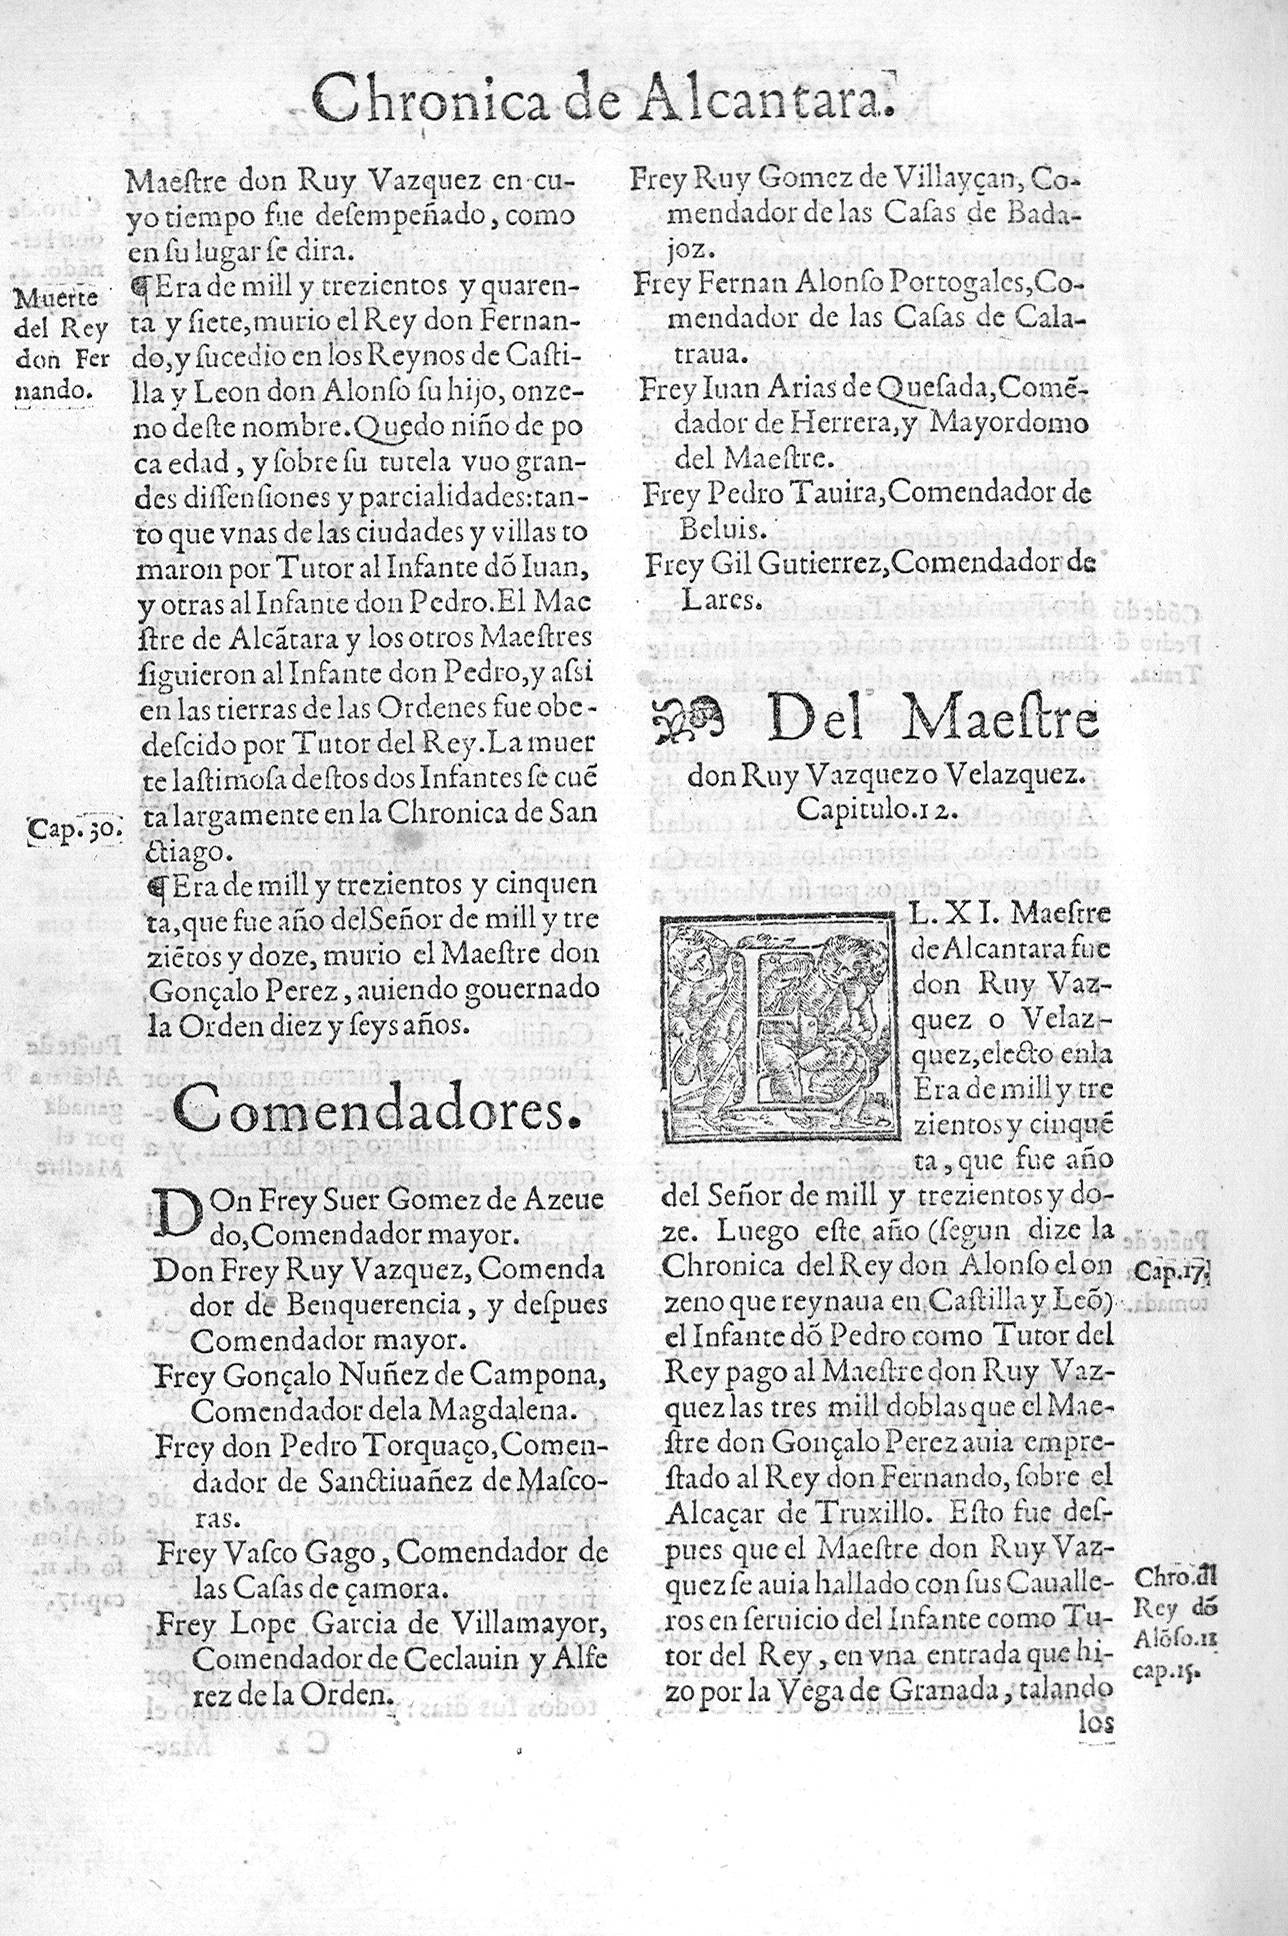 Chronica de Alcantara.
Maestre don Ruy Vazquez en cu-
yo tiempo fue desempeñado, como
en su lugar se dira.
¶Era de mill y trezientos y quaren-
ta y siete, murio el Rey don Fernan-
do, y sucedio en los Reynos de Casti-
lla y Leon don Alonso su hijo, onze-
no deste nombre. Quedo niño de po
ca edad, y sobre su tutela vuo gran-
des dissensiones y parcialidades: tan-
to que vnas de las ciudades y villas to
maron por Tutor al Infante dõ Iuan,
y otras al Infante don Pedro. El Mae
stre de Alcãtara y los otros Maestres
siguieron al Infante don Pedro, y assi
en las tierras de las Ordenes fue obe-
descido por Tutor del Rey. La muer
te lastimosa destos dos Infantes se cuẽ
ta largamente en la Chronica de San
ctiago.
¶Era de mill y trezientos y cinquen
ta, que fue año del Señor de mill y tre
ziẽtos y doze, murio el Maestre don
Gonçalo Perez, auiendo gouernado
la Orden diez y seys años.
Muerte
del Rey
don Fer
nando.
Cap. 30.
Comendadores.
DOn Frey Suer Gomez de Azeue
do, Comendador mayor.
Don Frey Ruy Vazquez, Comenda
dor de Benquerencia, y despues
Comendador mayor.
Frey Gonçalo Nuñez de Campona,
Comendador dela Magdalena.
Frey don Pedro Torquaço, Comen-
dador de Sanctiuañez de Masco-
ras.
Frey Vasco Gago, Comendador de
las Casas de çamora.
Frey Lope Garcia de Villamayor,
Comendador de Ceclauin y Alfe
rez de la Orden.
Frey Ruy Gomez de Villayçan, Co-
mendador de las Casas de Bada-
joz.
Frey Fernan Alonso Portogales, Co-
mendador de las Casas de Cala-
traua.
Frey Iuan Arias de Quesada, Comẽ-
dador de Herrera, y Mayordomo
del Maestre.
Frey Pedro Tauira, Comendador de
Beluis.
Frey Gil Gutierrez, Comendador de
Lares.
Del Maestre
don Ruy Vazquez o Velazquez.
Capitulo.12.
EL. XI. Maestre
de Alcantara fue
don Ruy Vaz-
quez o Velaz-
quez, electo enla
Era de mill y tre
zientos y cinquẽ
ta, que fue año
del Señor de mill y trezientos y do-
ze. Luego este año (segun dize la
Chronica del Rey don Alonso el on
zeno que reynaua en Castilla y Leõ)
el Infante dõ Pedro como Tutor del
Rey pago al Maestre don Ruy Vaz-
quez las tres mill doblas que el Mae-
stre don Gonçalo Perez auia empre-
stado al Rey don Fernando, sobre el
Alcaçar de Truxillo. Esto fue des-
pues que el Maestre don Ruy Vaz-
quez se auia hallado con sus Caualle-
ros en seruicio del Infante como Tu-
tor del Rey, en vna entrada que hi-
zo por la Vega de Granada, talando
los
Cap.17.
Chro.dl
Rey dõ
Alõso.11
cap.15.